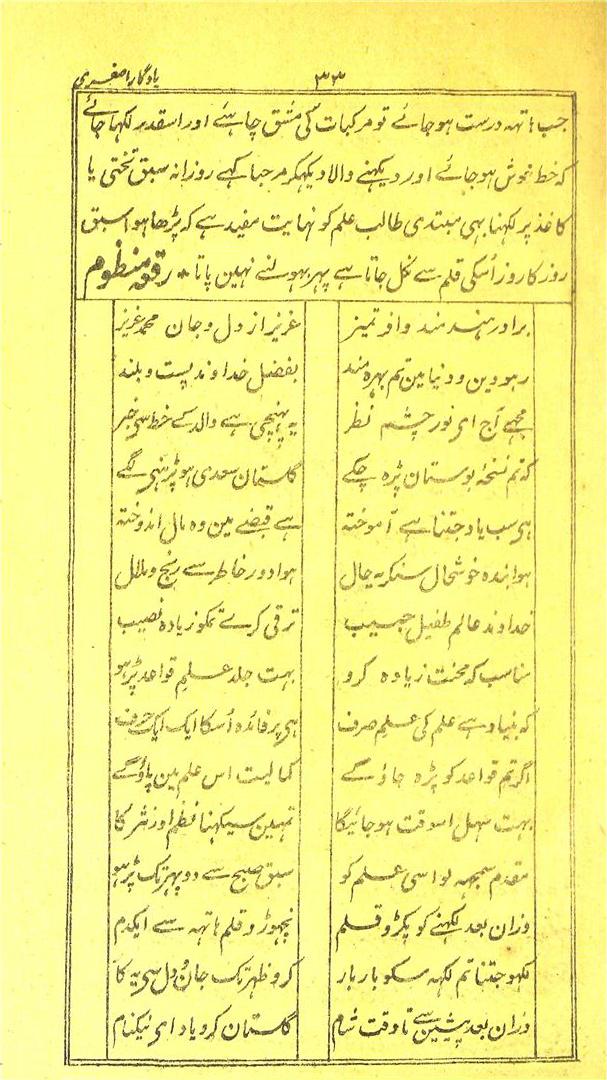 یادگار اصغری
۳۳
جب ہاتھہ درست ہوجائے تو مرکبات کی مشق چاہئے اور اسقدر لکھا جائے
کہ خط خوش ہوجائے اور دیکہنے والا دیکہکر مرحبا کہے روزانہ سبق تختی یا
کاغذ پر لکہنا بہی مبتدی طالب علم کو نہایت مفید ہے کہ پڑھا ہوا سبق
روز کا روز اُسکی قلم سے نکل جاتا ہے پہر بہولنے نہین پاتا * رقعہ منظوم
برادر ہنرمند وافر تمیز عزیز از دل و جان محمد عزیز
رہو دین و دنیا مین تم بہرہ مند بفضل خداوند پست و بلند
مجہے آج ای نور چشم نظر یہ پہنچی ہے والد کے خط سی خبر
کہ تم نسخۂ بوستان پڑہ چکے گلستان سعدی ہو پڑہنی لگے
ہی سب یاد جتنا ہے آموختہ ہے قبضے مین وہ مال اندوختہ
ہوا بندہ خوشحال سنکر یہ حال ہوا دور خاطر سے رنج و ملال
خداوند عالم طفیل حبیب ترقی کرے تمکو زیادہ نصیب
مناسب کہ محنت زیادہ کرو بہت جلد علم قواعد پڑہو
کہ بنیاد ہے علم کی علم صرف ہی پر فائدہ اُسکا ایک ایک حرف
اگر تم قواعد کو پڑہ جاؤ گے کمالیت اس علم مین پاؤ گے
بہت سہل اسوقت ہوجائیگا تمہین سیکہنا نظم اور نثر کا
مقدم سمجہہ لو اسی علم کو سبق صبح سے دوپہر تک پڑہو
وزان بعد لکہنے کو پکڑو قلم نچہوڑو قلم ہاتہہ سے ایکدم
لکہو جتنا تم لکہہ سکو بار بار کرو ظہر تک جان و دل سی یہ کا
وزان بعد پیشین سے تا وقت شام گلستان کرو یاد ای نیکنام